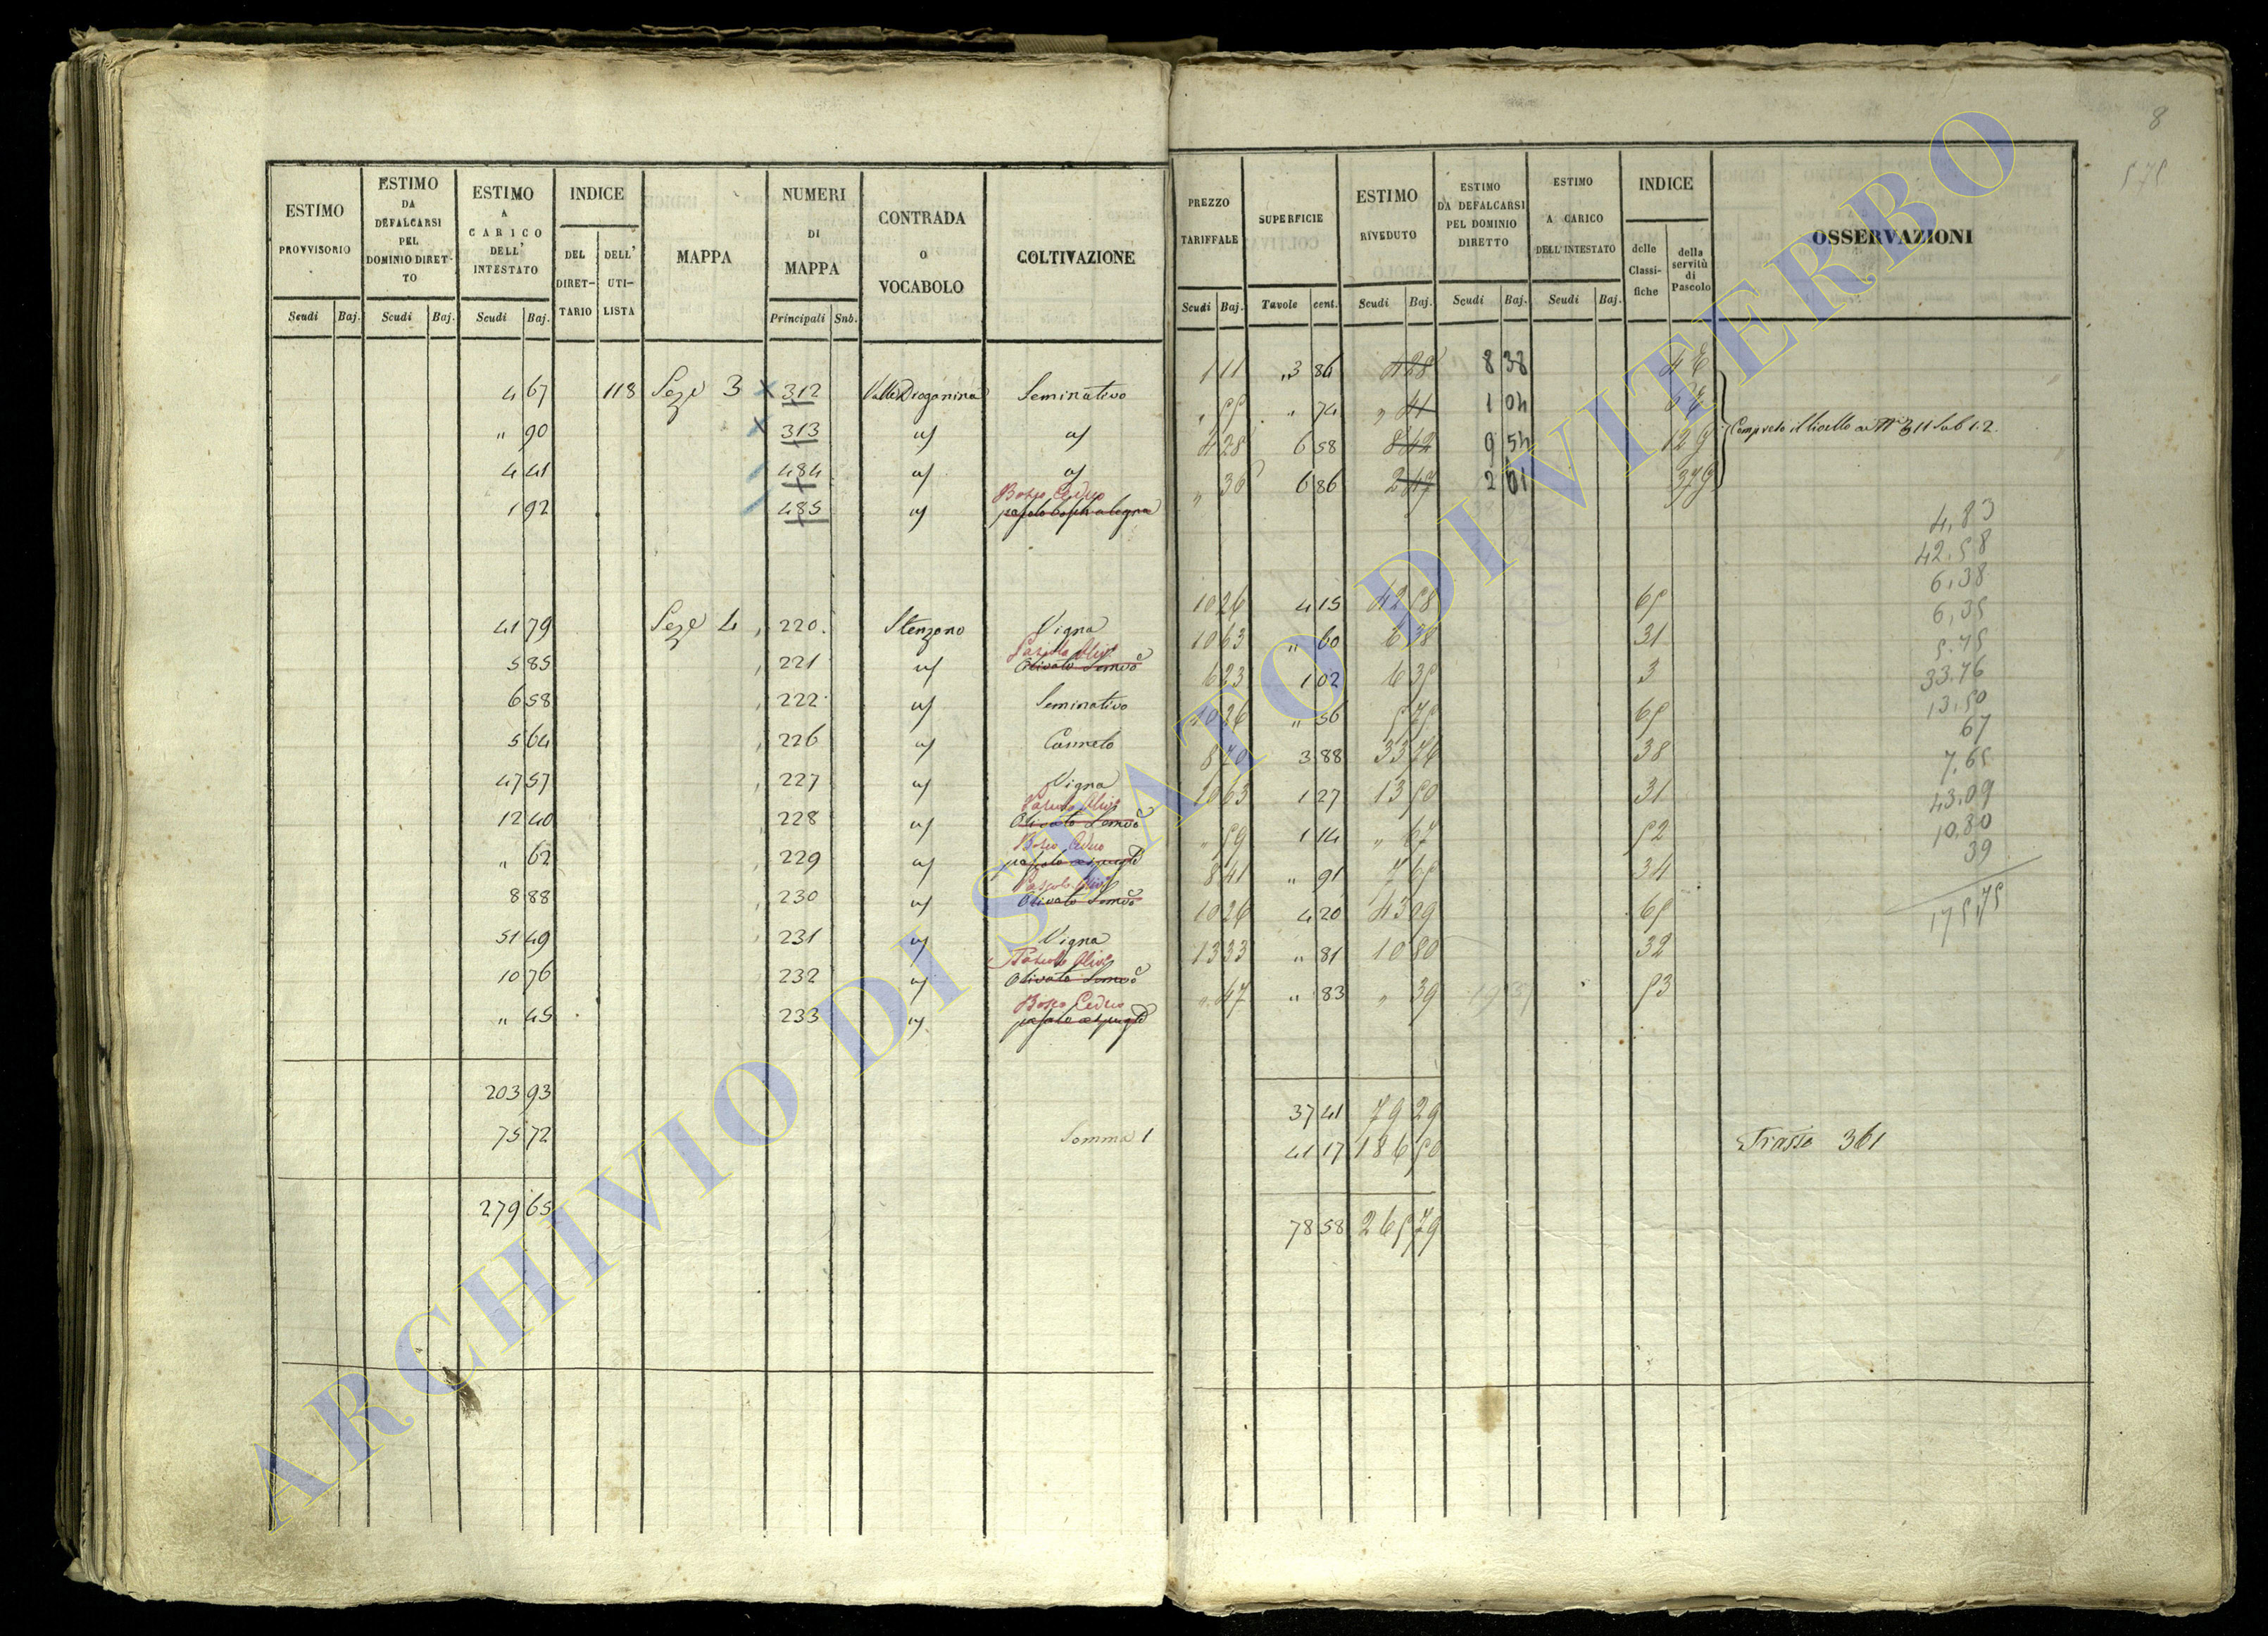 8
575
ESTIMO PROVVISORIO
ESTIMO DA DEFALCARSI PEL DOMINIO DIRET-TO
ESTIMO A CARICO DELL' INTESTATO
INDICE
DEL DIRET-TARIO
DELL' UTI-LISTA
MAPPA
NUMERI DI MAPPA
CONTRADA O VOCABOLO
COLTIVAZIONE
Scudi Baj. Scudi Baj. Scudi Baj. Principali Sub.
PREZZO TARIFFALE
SUPERFICIE
ESTIMO RIVEDUTO
ESTIMO DA DEFALCARSI PEL DOMINIO DIRETTO
ESTIMO A CARICO DELL' INTESTATO
INDICE
delle Classi-fiche
della servitù di Pascolo
OSSERVAZIONI
Scudi Baj. Tavole cent. Scudi Baj. Scudi Baj. Scudi Baj.
4 67 118 Seze 3 312 Seminativo 1 11 " 3 86 4 28 8 38
" 90 313 " 55 " 74 " 41 1 04
4 41 484 4 28 6 58 8 42 9 54 12 9
1 92 485 Bosco Ceduo " 36 6 86 2 47 2 01
311 Sub 1. 2.
41 79 Seze 4 220 Stenzano Vigna 10 26 4 15 42 58 65
5 85 221 Pascolo Oliv. Olivato Semvo 10 63 " 60 6 38 31
6 58 222 Seminativo 6 23 1 02 6 35 3
5 64 226 Canneto 10 26 " 56 5 75 65
47 57 227 Vigna 8 70 3 88 33 76 38
12 40 228 Pascolo Oliv. Olivato Semvo 10 63 1 27 13 50 31
" 62 229 Bosco Ceduo " 59 1 14 " 67 52
8 88 230 Pascolo Oliv. Olivato Semvo 8 41 " 91 7 65 34
51 49 231 Vigna 10 26 4 20 43 09 65
10 76 232 Pascolo Oliv. Olivato Semvo 13 33 " 81 10 80 32
" 45 233 Bosco Ceduo " 47 " 83 " 39 53
4,83
42.58
6,38
6,35
5.75
33.76
13,50
67
7,65
43.09
10.80
39
175,75
203 93 37 41 79 29
75 72 Somma 1 41 17 186 50 Trasse 361
279 65 78 58 265 79
ARCHIVIO DI STATO DI VITERBO